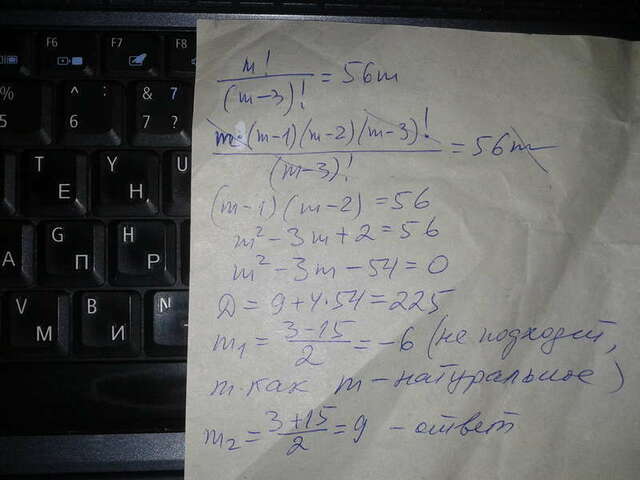 F6
F7
F8
%
5
^ :
6
& 7
7 ?
T
Е
Y
Н
U
A
G
П
H
Р
V
М
B
И
N
m!/(m-3)! = 56m
m·(m-1)(m-2)(m-3)!/(m-3)! = 56m
(m-1)(m-2)=56
m²-3m+2=56
m²-3m-54=0
Д=9+4·54=225
m₁=(3-15)/2=-6 (не подходит,
т.как m-натуральное)
m₂=(3+15)/2=9 - ответ